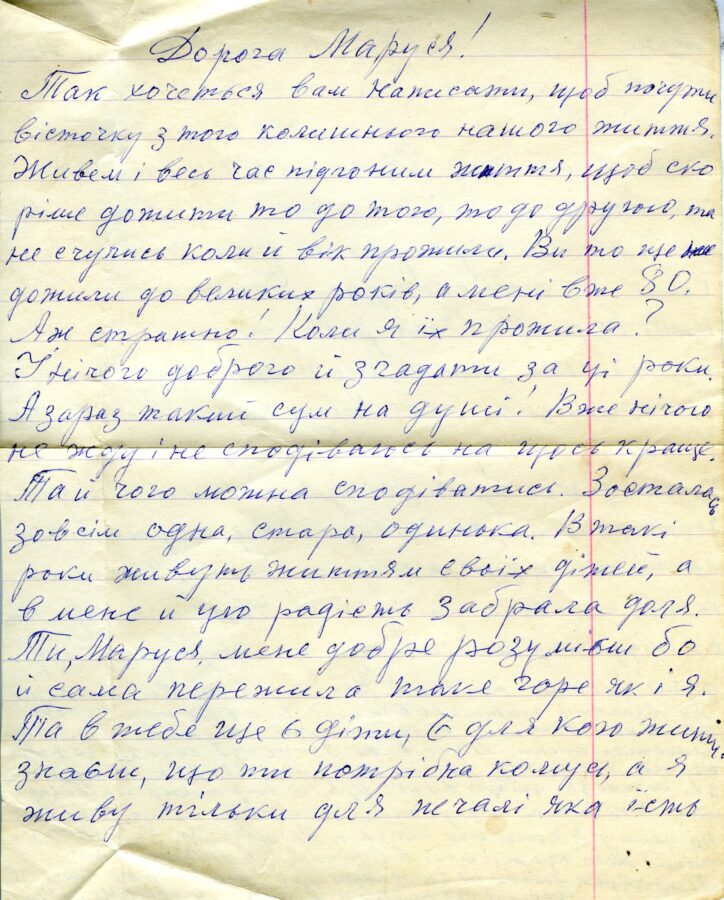 Дорога Маруся!
Так хочеться вам написати, щоб почути
вісточку з того колишнього нашого життя.
Живем і весь час підгоним життя, щоб ско
ріше дожити то до того, то до другого, та
не счулись коли й вік прожили. Ви то ще не
дожили до великих років, а мені вже 80.
Аж страшно! Коли я їх прожила?
І нічого доброго й згадати за ці роки.
А зараз такий сум на душі! Вже нічого
не жду і не сподіваюсь на щось краще.
Та й чого можна сподіватись. Зосталась
зовсім одна, стара, одинька. В такі
роки живуть життям своїх дітей, а
в мене й цю радість забрала доля.
Ти, Маруся, мене добре розумієш бо
й сама пережила таке горе як і я.
Та в тебе ще є діти, є для кого жить,
знаєш, що ти потрібна комусь, а я
живу тільки для печалі яка їсть